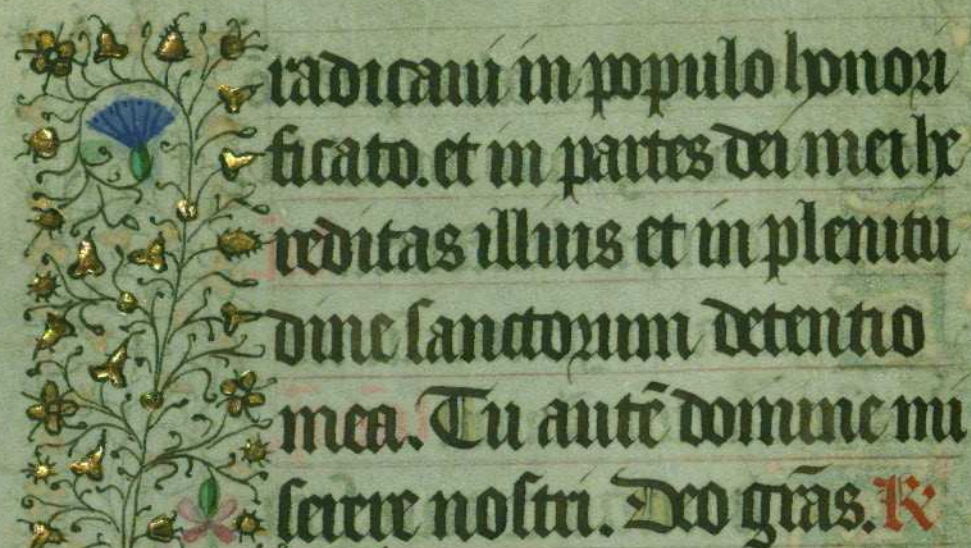 radicaui in populo honori
ficato. et in partes dei mei he
reditas illius et in plenitu
dine sanctorum detentio
mea. Tu autē domine mi
serere nostri. Deo grās. R